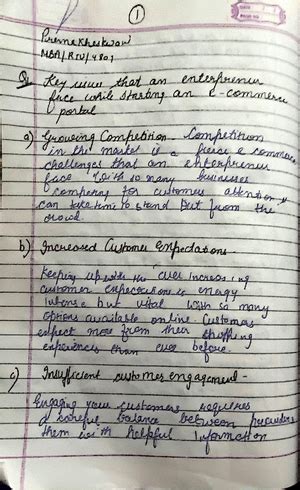 1
Prerna Khetawat
MBA/RTU/4801
Q. Key issues that an enterpreneur
face while starting an e-commerce
portal
a) Growing Competition - Competition
in the market is a fierce e commerce
challenges that an enterpreneur
face. With so many businesses
competing for customer attention it
can take time to stand out from the
crowd
b) Increased Customer Expectations -
Keeping up with the ever increasing
customer expectations is energy
intense but vital with so many
options available online. Customers
expect more from their shopping
experiences than ever before.
c) Insufficient customer engagement -
Engaging your customers requires
a careful balance between
them with helpful information